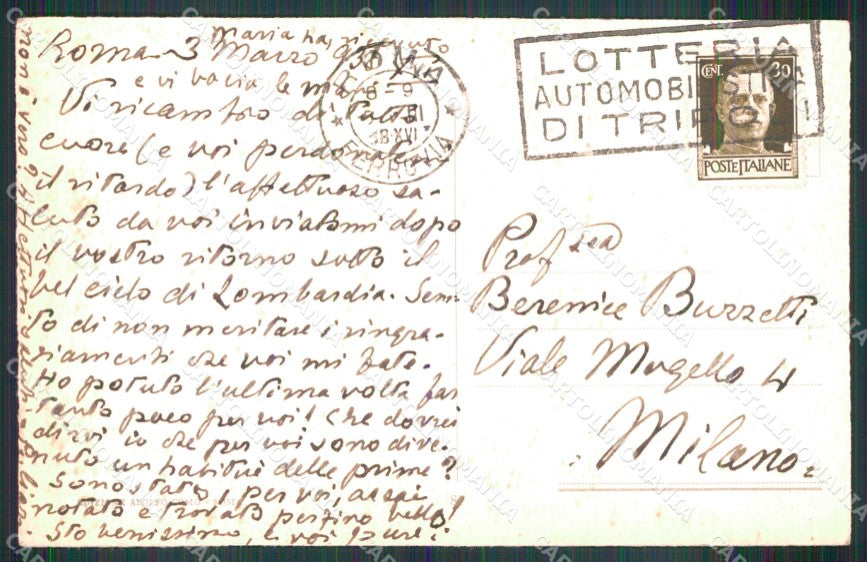 Maria ha ricevuto
e vi bacia le mani
Roma 3 Marzo 938 XVI
Vi ricambio di tutto
cuore (e voi perdonate
il ritardo) l'affettuoso sa-
luto da voi inviatomi dopo
il vostro ritorno sotto il
bel cielo di Lombardia. Sen-
to di non meritare i ringra-
ziamenti che voi mi fate.
Ho potuto l'ultima volta far
tanto poco per voi! Che dovrei
dirvi io che per voi sono dive-
nuto un habitué delle prime?
Sono stato, per voi, assai
notato e trovato perfino bello!
Sto benissimo, e voi pure?
non è vero?
LOTTERIA
AUTOMOBILISTICA
DI TRIPOLI
8-9
38 XVI
FERROVIA
CENT. 30
POSTE ITALIANE
Prof ssa
Berenice Buzzetti
Viale Mugello 4
Milano
CARTOLINOMANIA